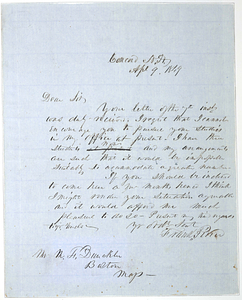 Concord, N.H.,
Apl. 9, 1849
Dear Sir,
Your letter of the 7th inst
was duly received. I regret that I cannot
encourage you to pursue your studies
in my office at present. I have three
students now and my arrangements
are such that it would be impossible
suitably to accommodate a greater number.
If you should be inclined
to come here a few months hence I think
I might render your situation agreeable
and it would afford me much
pleasure to do so.
Yr. Obdt. Servt
Mr. N. F. Dunklee
Boston
Mass